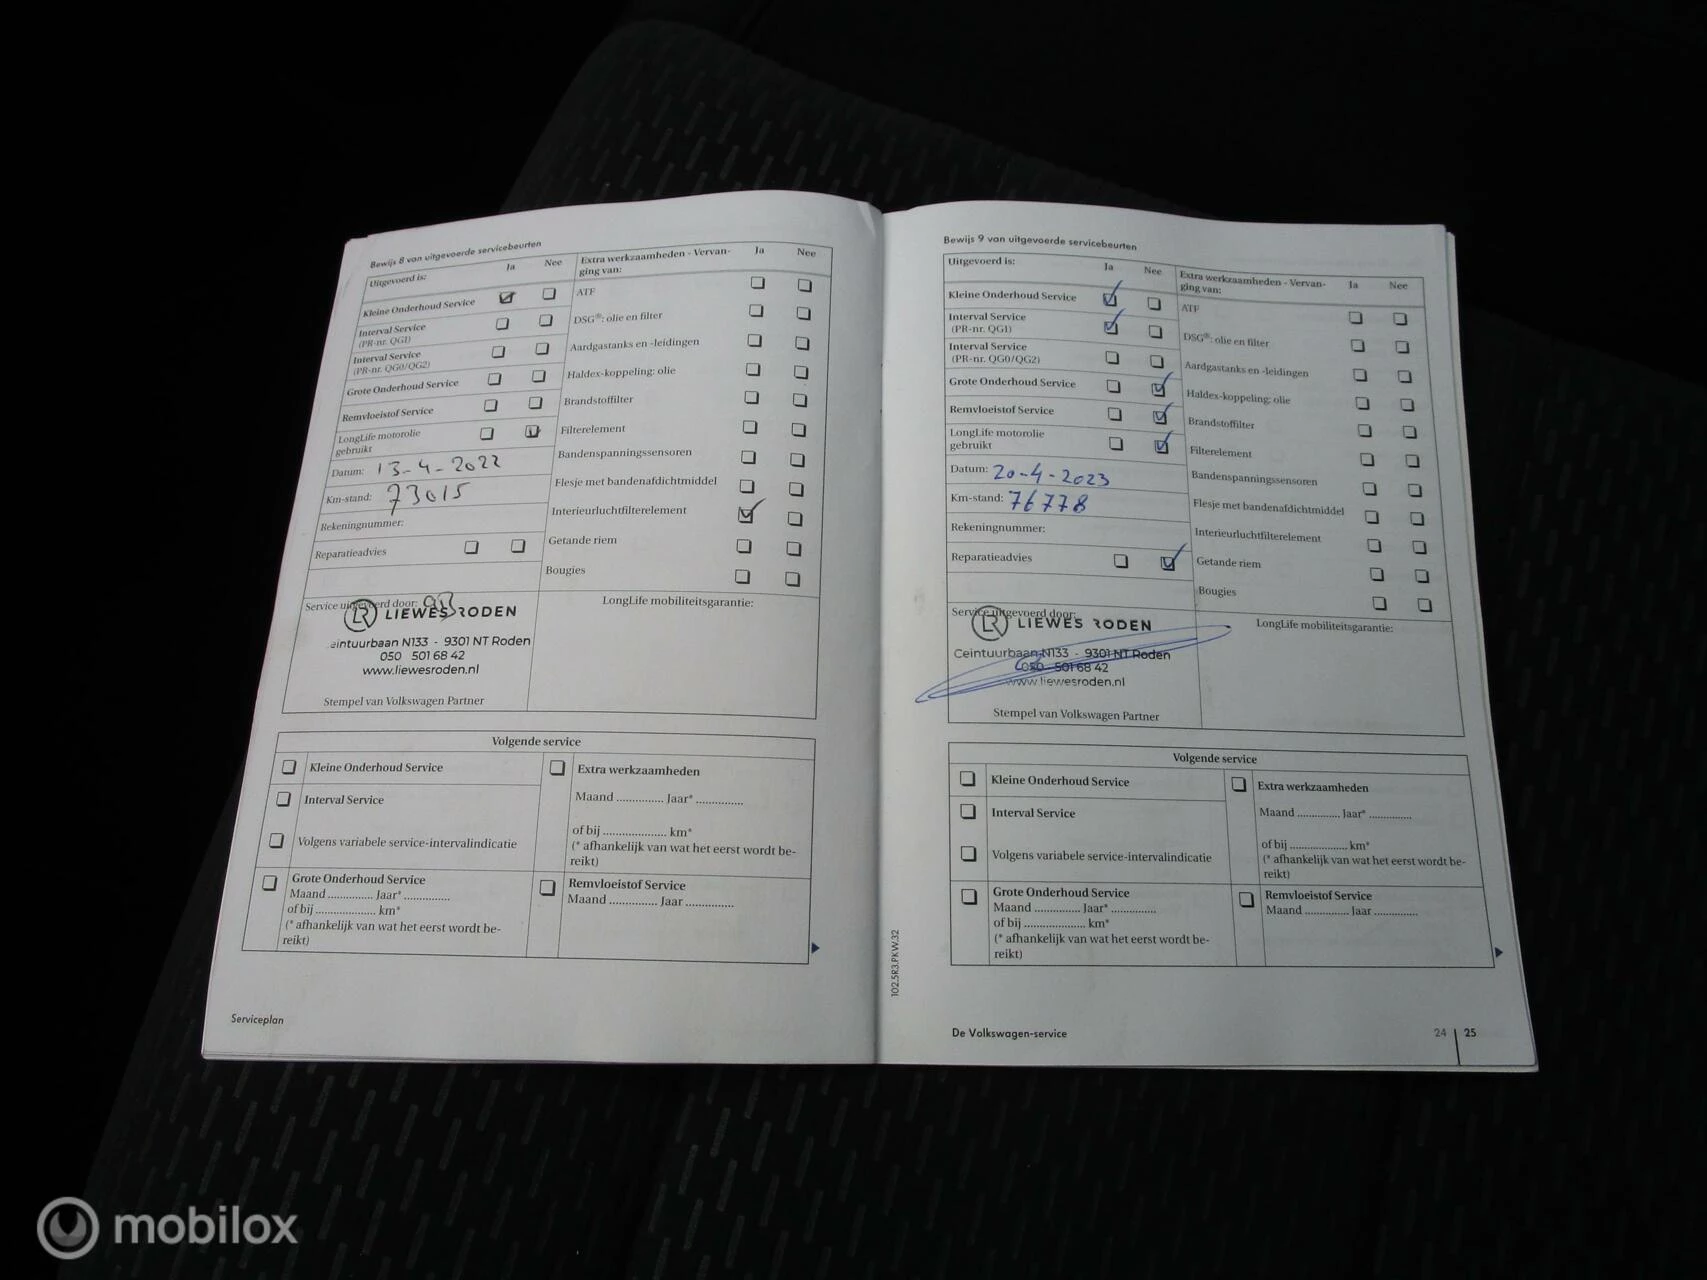 Bewijs 8 van uitgevoerde servicebeurten
Uitgevoerd is: Ja Nee
Kleine Onderhoud Service
Interval Service
(PR-nr. QG1)
Interval Service
(PR-nr. QG0/QG2)
Grote Onderhoud Service
Remvloeistof Service
LongLife motorolie
gebruikt
Datum: 13-4-2022
Km-stand: 73015
Rekeningnummer:
Reparatieadvies
Extra werkzaamheden - Vervan-
ging van: Ja Nee
ATF
DSG®: olie en filter
Aardgastanks en -leidingen
Haldex-koppeling: olie
Brandstoffilter
Filterelement
Bandenspanningssensoren
Flesje met bandenafdichtmiddel
Interieurluchtfilterelement
Getande riem
Bougies
Service uitgevoerd door:
LR LIEWES RODEN
eintuurbaan N133 - 9301 NT Roden
050 501 68 42
www.liewesroden.nl
Stempel van Volkswagen Partner
LongLife mobiliteitsgarantie:
Volgende service
Kleine Onderhoud Service
Interval Service
Volgens variabele service-intervalindicatie
Grote Onderhoud Service
Maand .............. Jaar* ..............
of bij .................... km*
(* afhankelijk van wat het eerst wordt be-
reikt)
Extra werkzaamheden
Maand .............. Jaar* ..............
of bij .................... km*
(* afhankelijk van wat het eerst wordt be-
reikt)
Remvloeistof Service
Maand .............. Jaar ..............
Serviceplan
Bewijs 9 van uitgevoerde servicebeurten
Uitgevoerd is: Ja Nee
Kleine Onderhoud Service
Interval Service
(PR-nr. QG1)
Interval Service
(PR-nr. QG0/QG2)
Grote Onderhoud Service
Remvloeistof Service
LongLife motorolie
gebruikt
Datum: 20-4-2023
Km-stand: 76778
Rekeningnummer:
Reparatieadvies
Extra werkzaamheden - Vervan-
ging van: Ja Nee
ATF
DSG®: olie en filter
Aardgastanks en -leidingen
Haldex-koppeling: olie
Brandstoffilter
Filterelement
Bandenspanningssensoren
Flesje met bandenafdichtmiddel
Interieurluchtfilterelement
Getande riem
Bougies
Service uitgevoerd door:
LR LIEWES RODEN
Ceintuurbaan N133 - 9301 NT Roden
050 501 68 42
www.liewesroden.nl
Stempel van Volkswagen Partner
LongLife mobiliteitsgarantie:
Volgende service
Kleine Onderhoud Service
Interval Service
Volgens variabele service-intervalindicatie
Grote Onderhoud Service
Maand .............. Jaar* ..............
of bij .................... km*
(* afhankelijk van wat het eerst wordt be-
reikt)
Extra werkzaamheden
Maand .............. Jaar* ..............
of bij .................... km*
(* afhankelijk van wat het eerst wordt be-
reikt)
Remvloeistof Service
Maand .............. Jaar ..............
102.5R3.PKW.32
De Volkswagen-service
24 25
mobilox